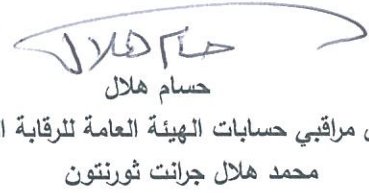 حسام هلال
حسام هلال
مراقبي حسابات الهيئة العامة للرقابة
محمد هلال جرانت ثورنتون